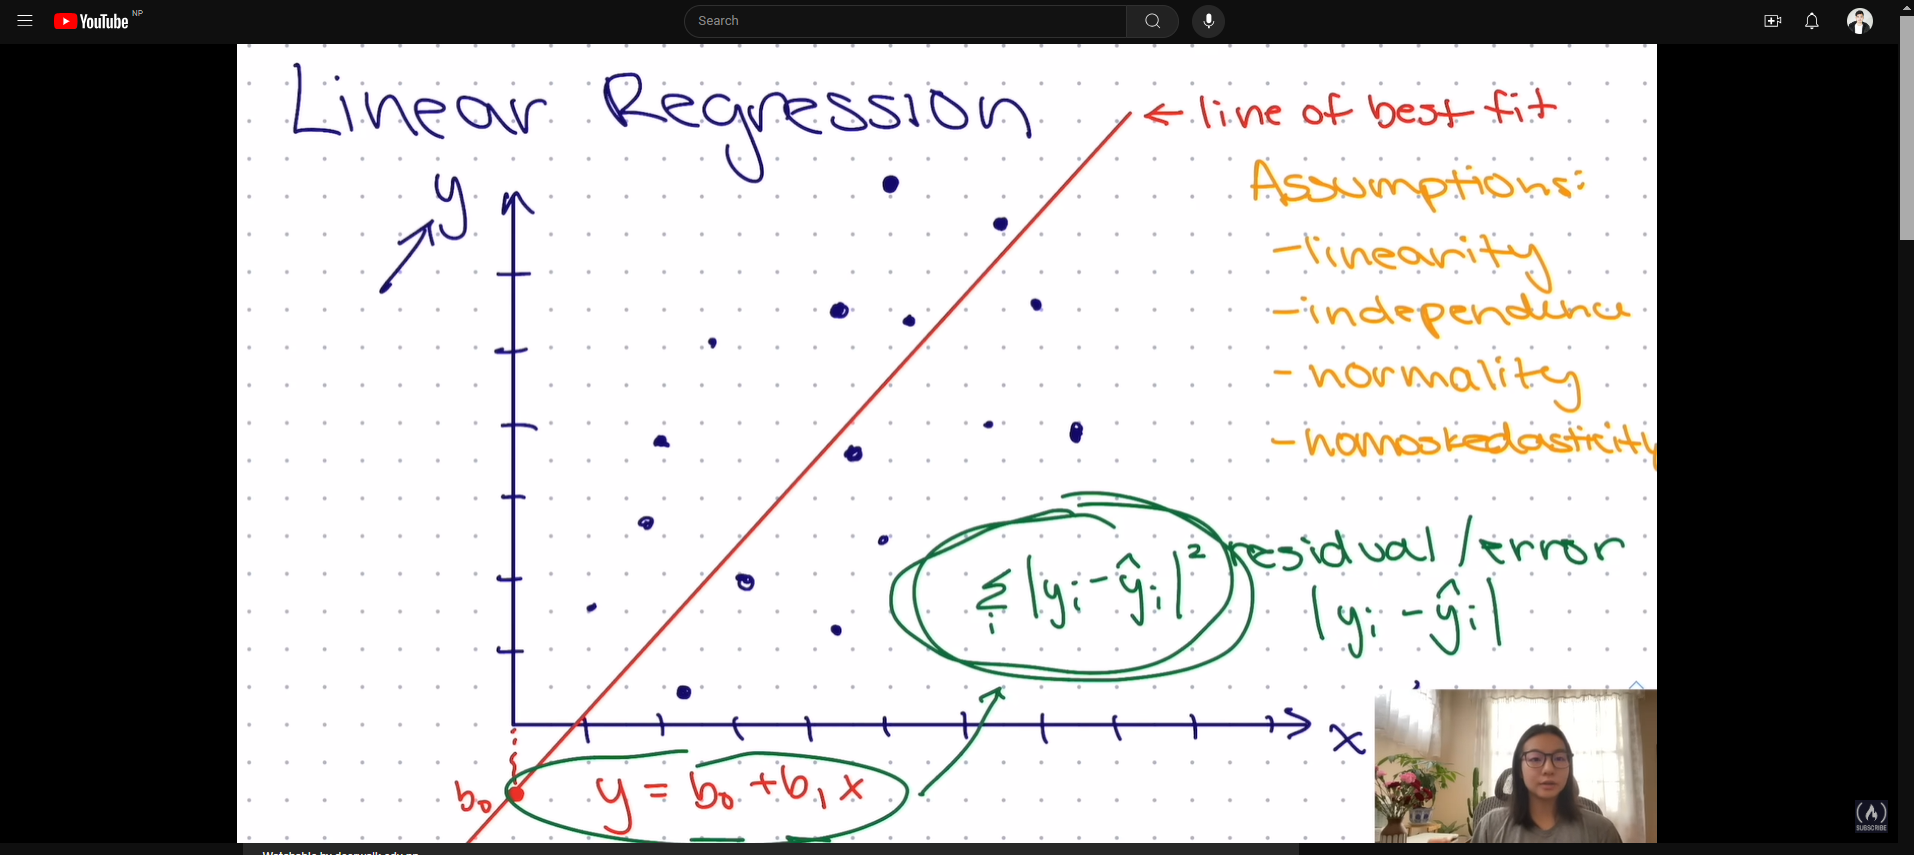 YouTube NP
Search
Linear Regression
← line of best fit
Assumptions:
y
- linearity
- independence
- normality
- homoskedasticity
residual/error
Σ|yᵢ - ŷᵢ|²
i
|yᵢ - ŷᵢ|
x
b₀
y = b₀ + b₁x
SUBSCRIBE